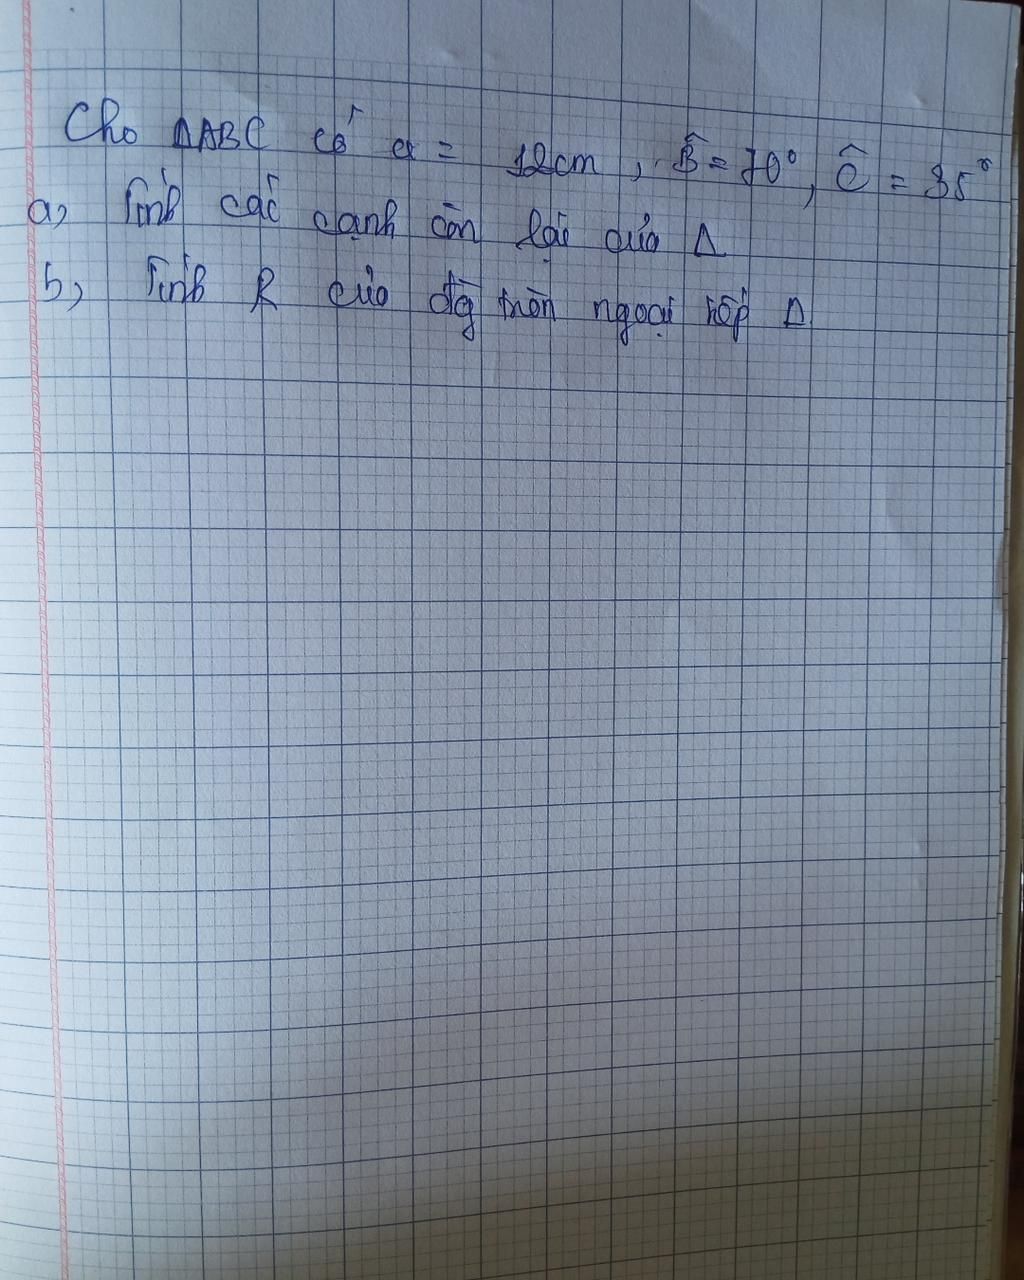 Cho ΔABC có a = 12cm, B̂ = 70°, Ĉ = 35°
a, Tính các cạnh còn lại của Δ
b, Tính R của đg tròn ngoại tiếp Δ